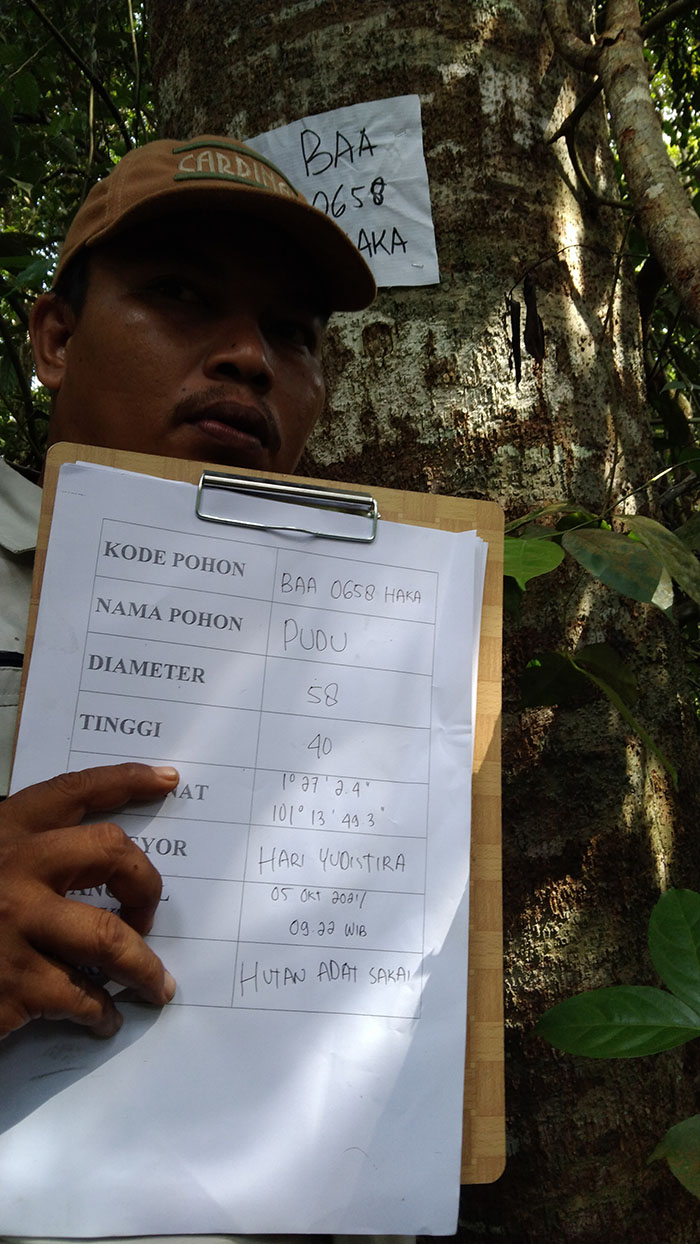 CARDING
BAA
0658
AKA
KODE POHON BAA 0658 HAKA
NAMA POHON PUDU
DIAMETER 58
TINGGI 40
NAT 1° 27' 2.4"
101° 13' 49.3"
YOR HARI YUDISTIRA
05 OKT 2021/
09.22 WIB
HUTAN ADAT SAKAI